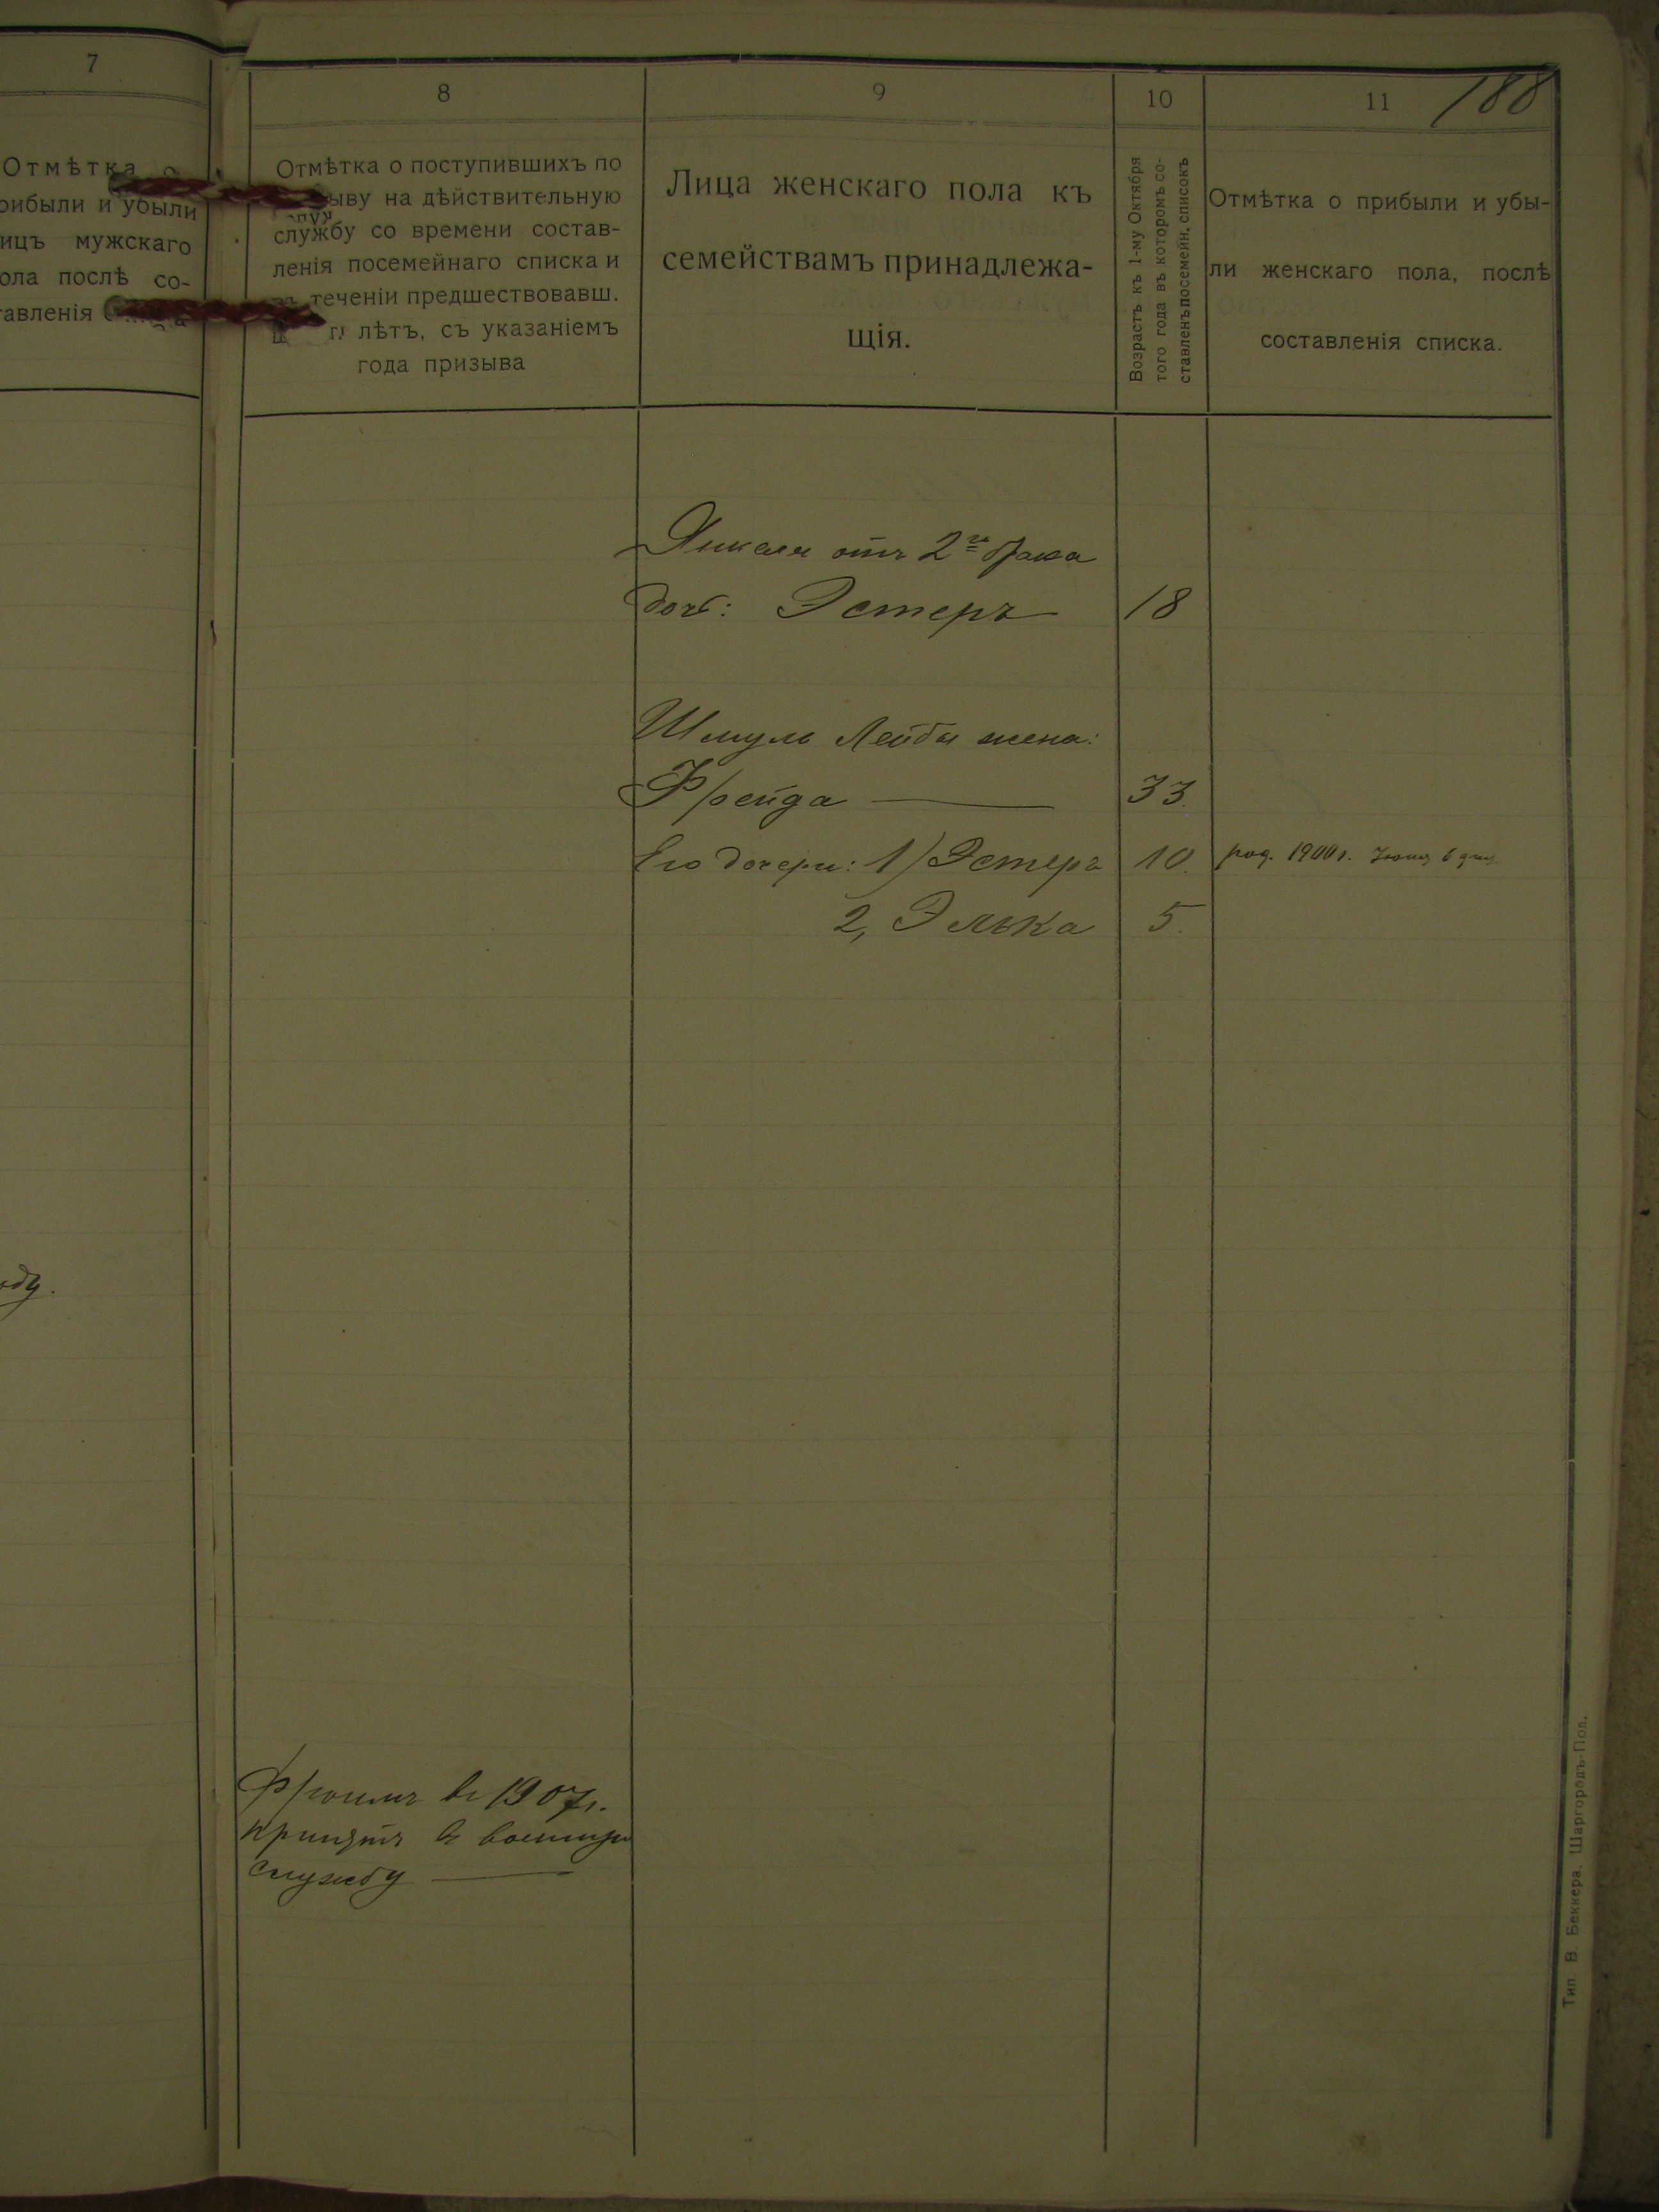 7
Отмѣтка о
рибыли и убыли
ицъ мужскаго
ола послѣ со-
тавленія
оду.
188
8
Отмѣтка о поступившихъ по
ыву на дѣйствительную
службу со времени состав-
ленія посемейнаго списка и
теченіи предшествовавш.
лѣтъ, съ указаніемъ
года призыва
9
Лица женскаго пола къ
семействамъ принадлежа-
щія.
10
Возрастъ къ 1-му Октября
того года въ которомъ со-
ставленъ посемейн. списокъ
11
Отмѣтка о прибыли и убы-
ли женскаго пола, послѣ
составленія списка.
Янкеля отъ 2го брака
доч: Эстеръ 18
Шмуль Лейбы жена:
Фрейда 33.
Его дочери: 1) Эстеръ 10. род. 1900 г. 6 дня
2, Элька 5.
Фроимъ въ 1907 г.
принятъ въ военную
службу
Тип. В. Беккера. Шаргородъ-Под.